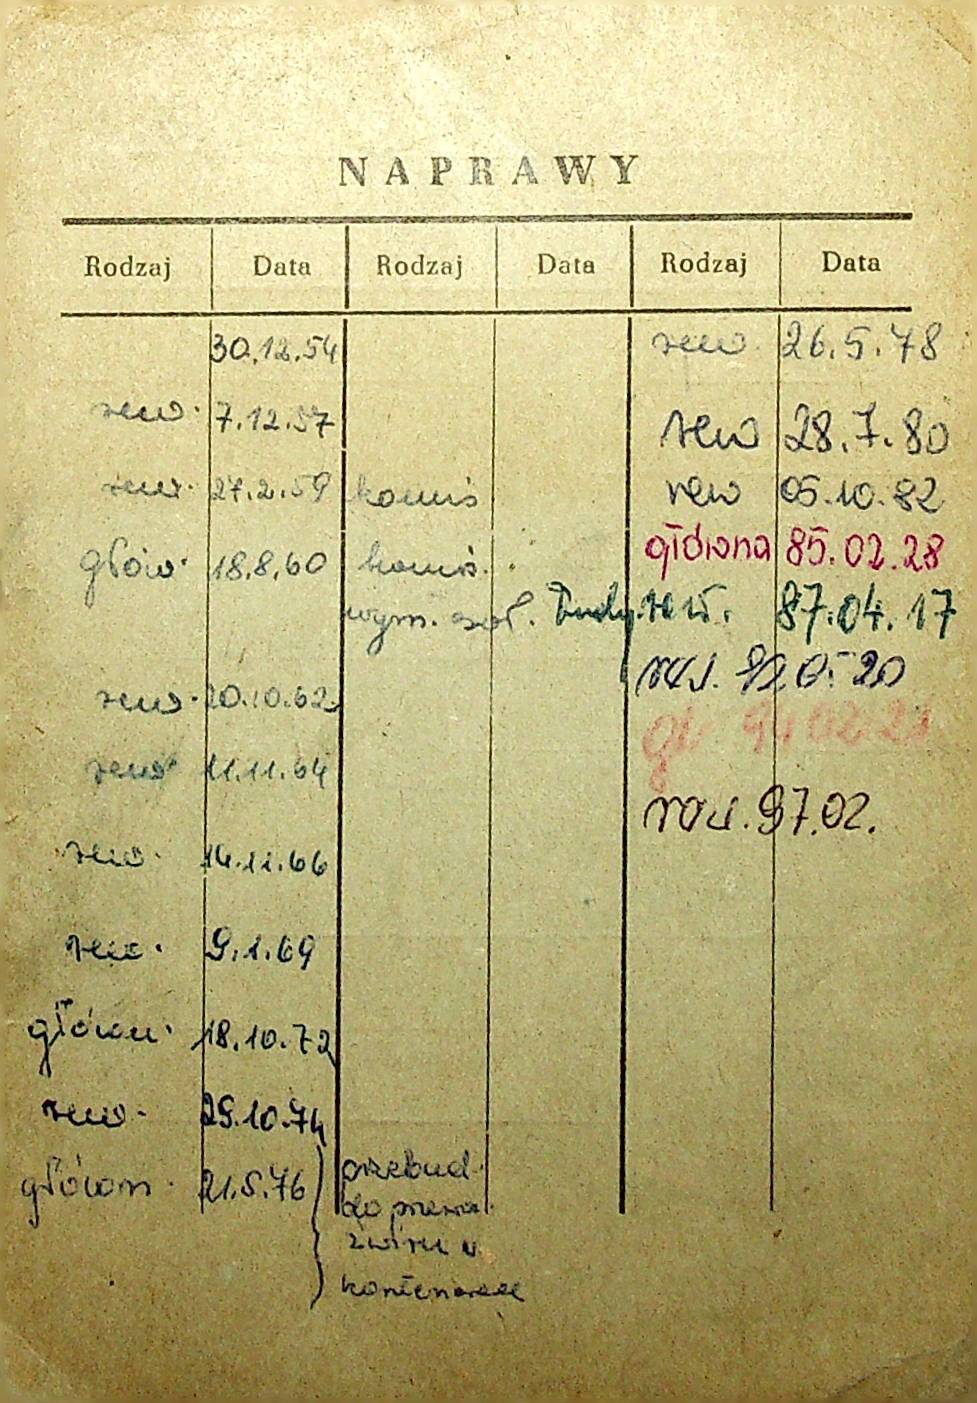 NAPRAWY
Rodzaj Data Rodzaj Data Rodzaj Data
30.12.54
rew. 7.12.57
rew. 27.2.59 komis
głów. 18.8.60 komis.
wym.
rew. 20.10.62
rew. 11.11.64
rew. 14.11.66
rew. 9.1.69
główn. 18.10.72
rew. 29.10.74
główn. 21.5.76 przebud.
do przew.
żwiru w
kontenerze
rew. 26.5.78
rew 28.7.80
rew 05.10.82
główna 85.02.28
rew. 87.04.17
gł 94 02 23
97.02.